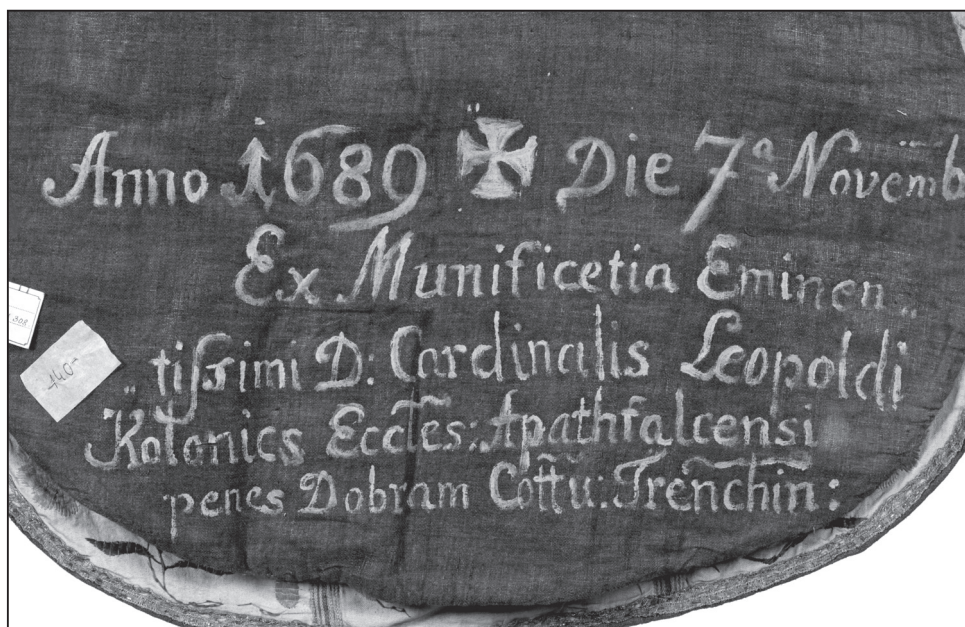 Anno 1689 ✠ Die 7ª Novemb
Ex Munificetia Eminen„
tiſsimi D: Cardinalis Leopoldi
Kolonics Eccles: Apathfalcensi
penes Dobram Cottu: Trenchin:
308
140-